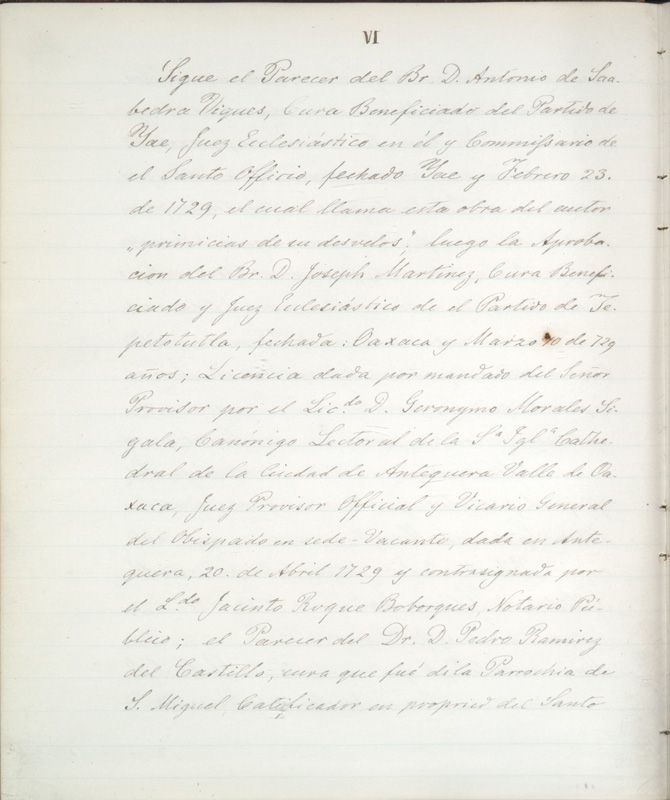 VI
Sigue el Parecer del Br. D. Antonio de Saa-
bedra Vigues, Cura Beneficiado del Partido de
Yae, Juez Ecclesiástico en él y Commissario de
el Santo Officio, fechado Yae y Febrero 23.
de 1729, el cual llama esta obra del autor
„primicias de su desvelos". luego la Aproba-
cion del Br. D. Joseph Martinez, Cura Benefi-
ciado y Juez Eclesiástico de el Partido de Te-
petotutla, fechada: Oaxaca y Marzo 10 de 729
años; Licencia dada por mandado del Señor
Provisor por el Lic.do D. Geronymo Morales Si-
gala, Canónigo Lectoral de la S.a Igl.a Cathe-
dral de la Ciudad de Antequera Valle de Oa-
xaca, Juez Provisor Official y Vicario General
del Obispado en sede-Vacante, dada en Ante-
quera, 20. de Abril 1729 y contrasignada por
el L.do Jacinto Roque Boberques, Notario Pú-
blico; el Parecer del Dr. D. Pedro Ramirez
del Castillo, cura que fué di la Parrochia de
S. Miguel, Catificador en propried del Santo